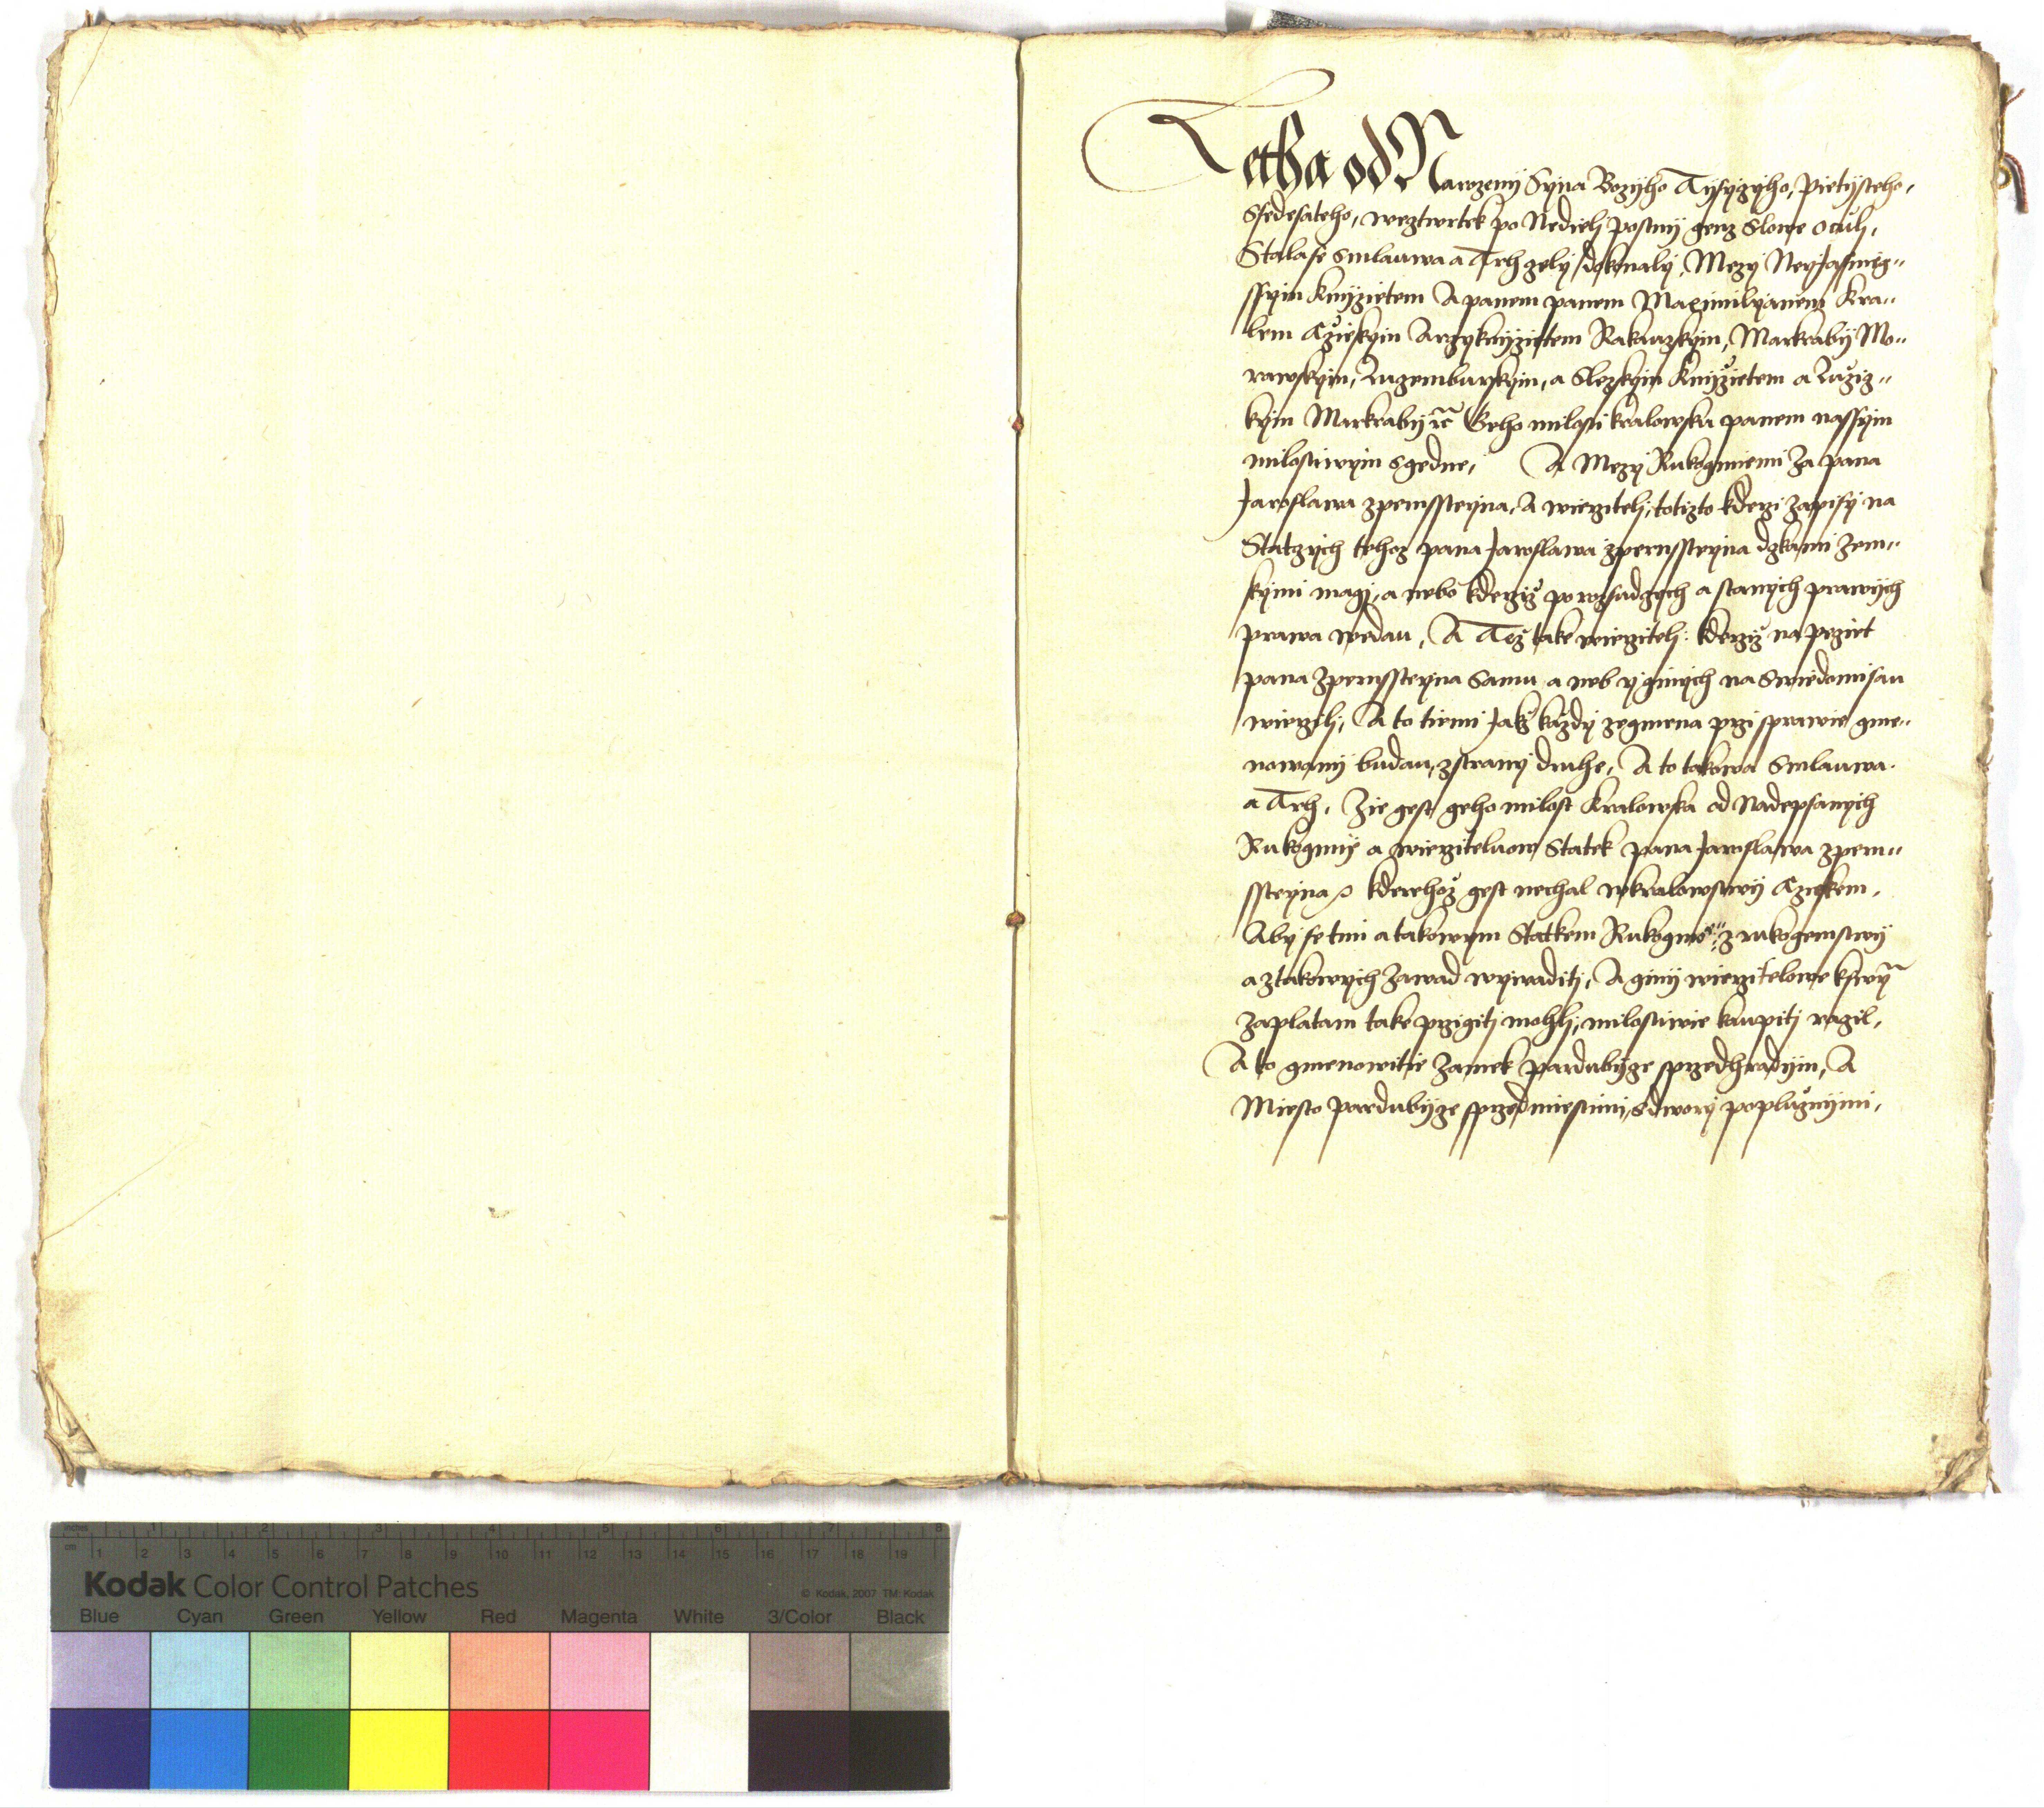 Letha od Narozenij Syna Bozijho Tijsyzijho, Pietijsteho,
Ssedesateho, wcztwrtek po Nedieli postnij genz slowe Oculi,
Stala se smlauwa a Trh zely dokonaly, Mezy Neyjasnieg„
ssym Knijzietem A panem panem Maximilyanem Kra„
lem Czieskym Arzyknijzietem Rakauzskym, Markrabij Mo„
rawskym, Luzemburskym, a Slezskym Knijzietem a Luziz„
kym Markrabij ꝛc̃ Geho milosti kralowska panem nassym
milostiwym sgedne, A Mezy Rukogmiemi za pana
Jaroslawa zpernssteyna, A wierziteli, totizto kderzi zapisy na
Statczych tehoz pana Jaroslawa zpernssteyna dskami zem„
skymi magi, a nebo kderziz po rozsudczych a stanych prawych
prawa wedau, A Tez take wierziteli: kderziz na peczet
pana zpernssteyna samu a neb y ginych na swiedomi sau
wierzili, A to tiemi jakz kazdy ze gmena przi sprawie gme„
nowany budau, zstrany druhe, A to takowa Smlauwa
a Trh, Zie gest geho milost Kralowska od Nadepsanych
Rukogmij a wierziteluow Statek pana Jaroslawa zpern„
ssteyna kderehoz gest nechal w kralowstwij Czieskem,
Aby se tim a takowym Statkem Rukogmie z rukogemstwij
a z takowych zawad wywaditi, A ginij wierzitelowe k swym
zaplatam take przigiti mohli, milostiwie kaupiti raczil,
A to gmenowitie Zamek Pardubijcze s przedhradijm, A
Miesto Pardubijcze s przedmiestimi, s dwory popluznijmi,
inches 1 2 3 4 5 6 7 8
cm 1 2 3 4 5 6 7 8 9 10 11 12 13 14 15 16 17 18 19
Kodak Color Control Patches © Kodak, 2007 TM: Kodak
Blue Cyan Green Yellow Red Magenta White 3/Color Black